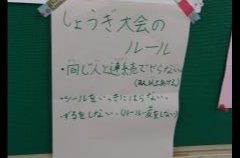 しょうぎ大会の
ルール
・同じ人と連続でやらない
・シールをいっきにはらない
・ずるをしない(ルール変をしない)